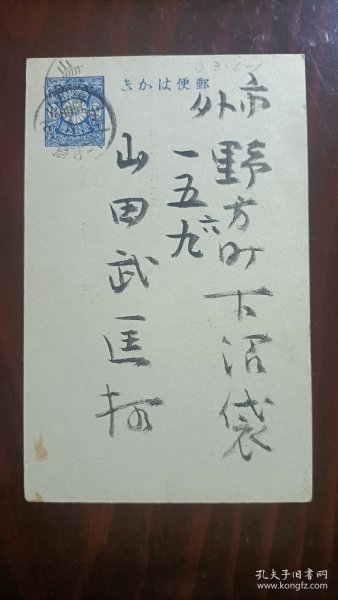 郵便はかき
市外
野方町下沼袋
一五九六
山田武匡様
孔夫子旧书网
book.kongfz.com